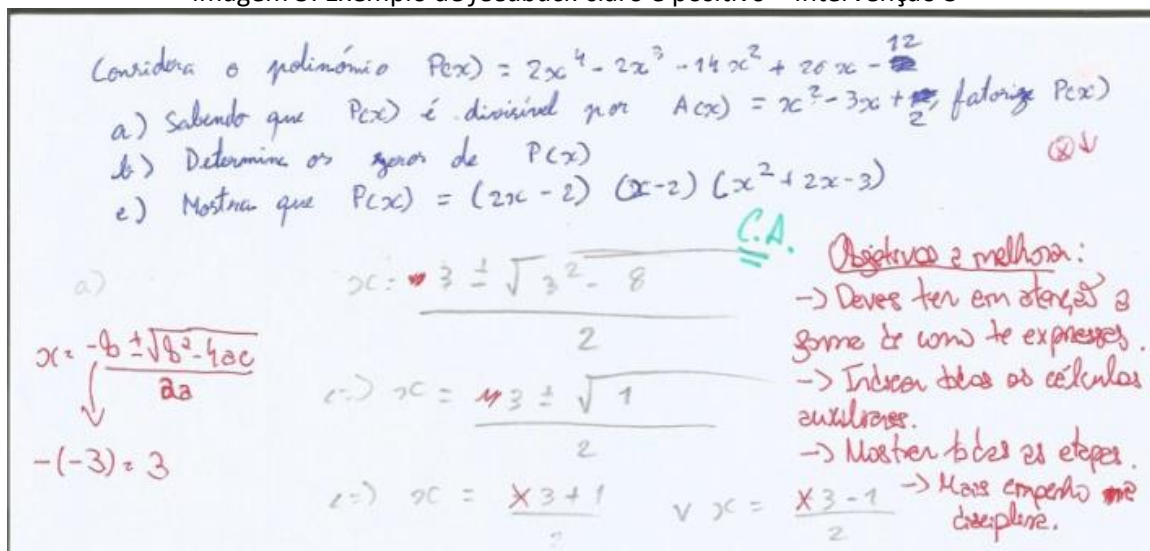 Imagem 5: Exemplo de feedback claro e positivo – Intervenção 3
Considera o polinómio P(x) = 2x⁴ - 2x³ - 14x² + 26x - 12
a) Sabendo que P(x) é divisível por A(x) = x² - 3x + 2, fatorize P(x)
b) Determine os zeros de P(x)
c) Mostra que P(x) = (2x - 2) (x - 2) (x² + 2x - 3)
C.A.
a)
x = 3 ± √3² - 8
2
<=> x = 3 ± √1
2
<=> x = 3 + 1 v x = 3 - 1
2 2
x = -b ± √b² - 4ac
2a
-(-3) = 3
Objetivos a melhorar:
-> Deves ter em atenção a
forma de como te expressas.
-> Indicar todos os cálculos
auxiliares.
-> Mostrar todas as etapas.
-> Mais empenho na
disciplina.